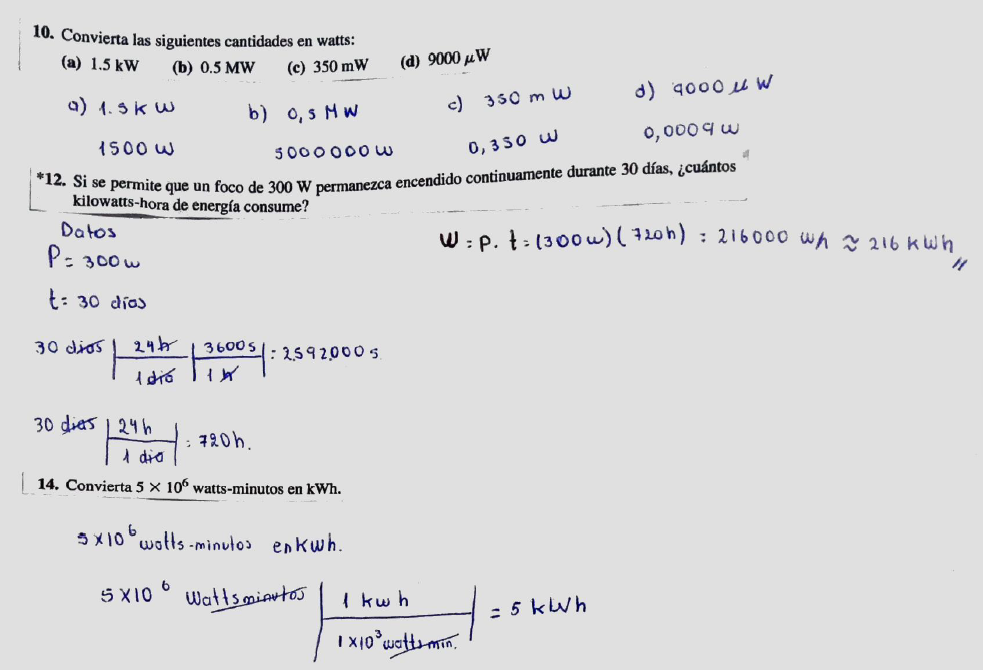 10. Convierta las siguientes cantidades en watts:
(a) 1.5 kW (b) 0.5 MW (c) 350 mW (d) 9000 μW
a) 1.5 k W b) 0,5 M W c) 350 m W d) 9000 μ W
1500 W 5000000 W 0,350 W 0,0009 W
*12. Si se permite que un foco de 300 W permanezca encendido continuamente durante 30 días, ¿cuántos
kilowatts-hora de energía consume?
Datos
P = 300 w
t = 30 días
W = P. t = (300w) (720h) = 216000 wh ≈ 216 kWh //
30 dias | 24h / 1 dia | 3600 s / 1 h | = 2592000 s
30 dias | 24 h / 1 dia | = 720h.
14. Convierta 5 × 10⁶ watts-minutos en kWh.
5 x10⁶ watts-minutos en kwh.
5 X10⁶ Watts minutos | 1 kw h / 1 x10³ watts min. | = 5 kWh